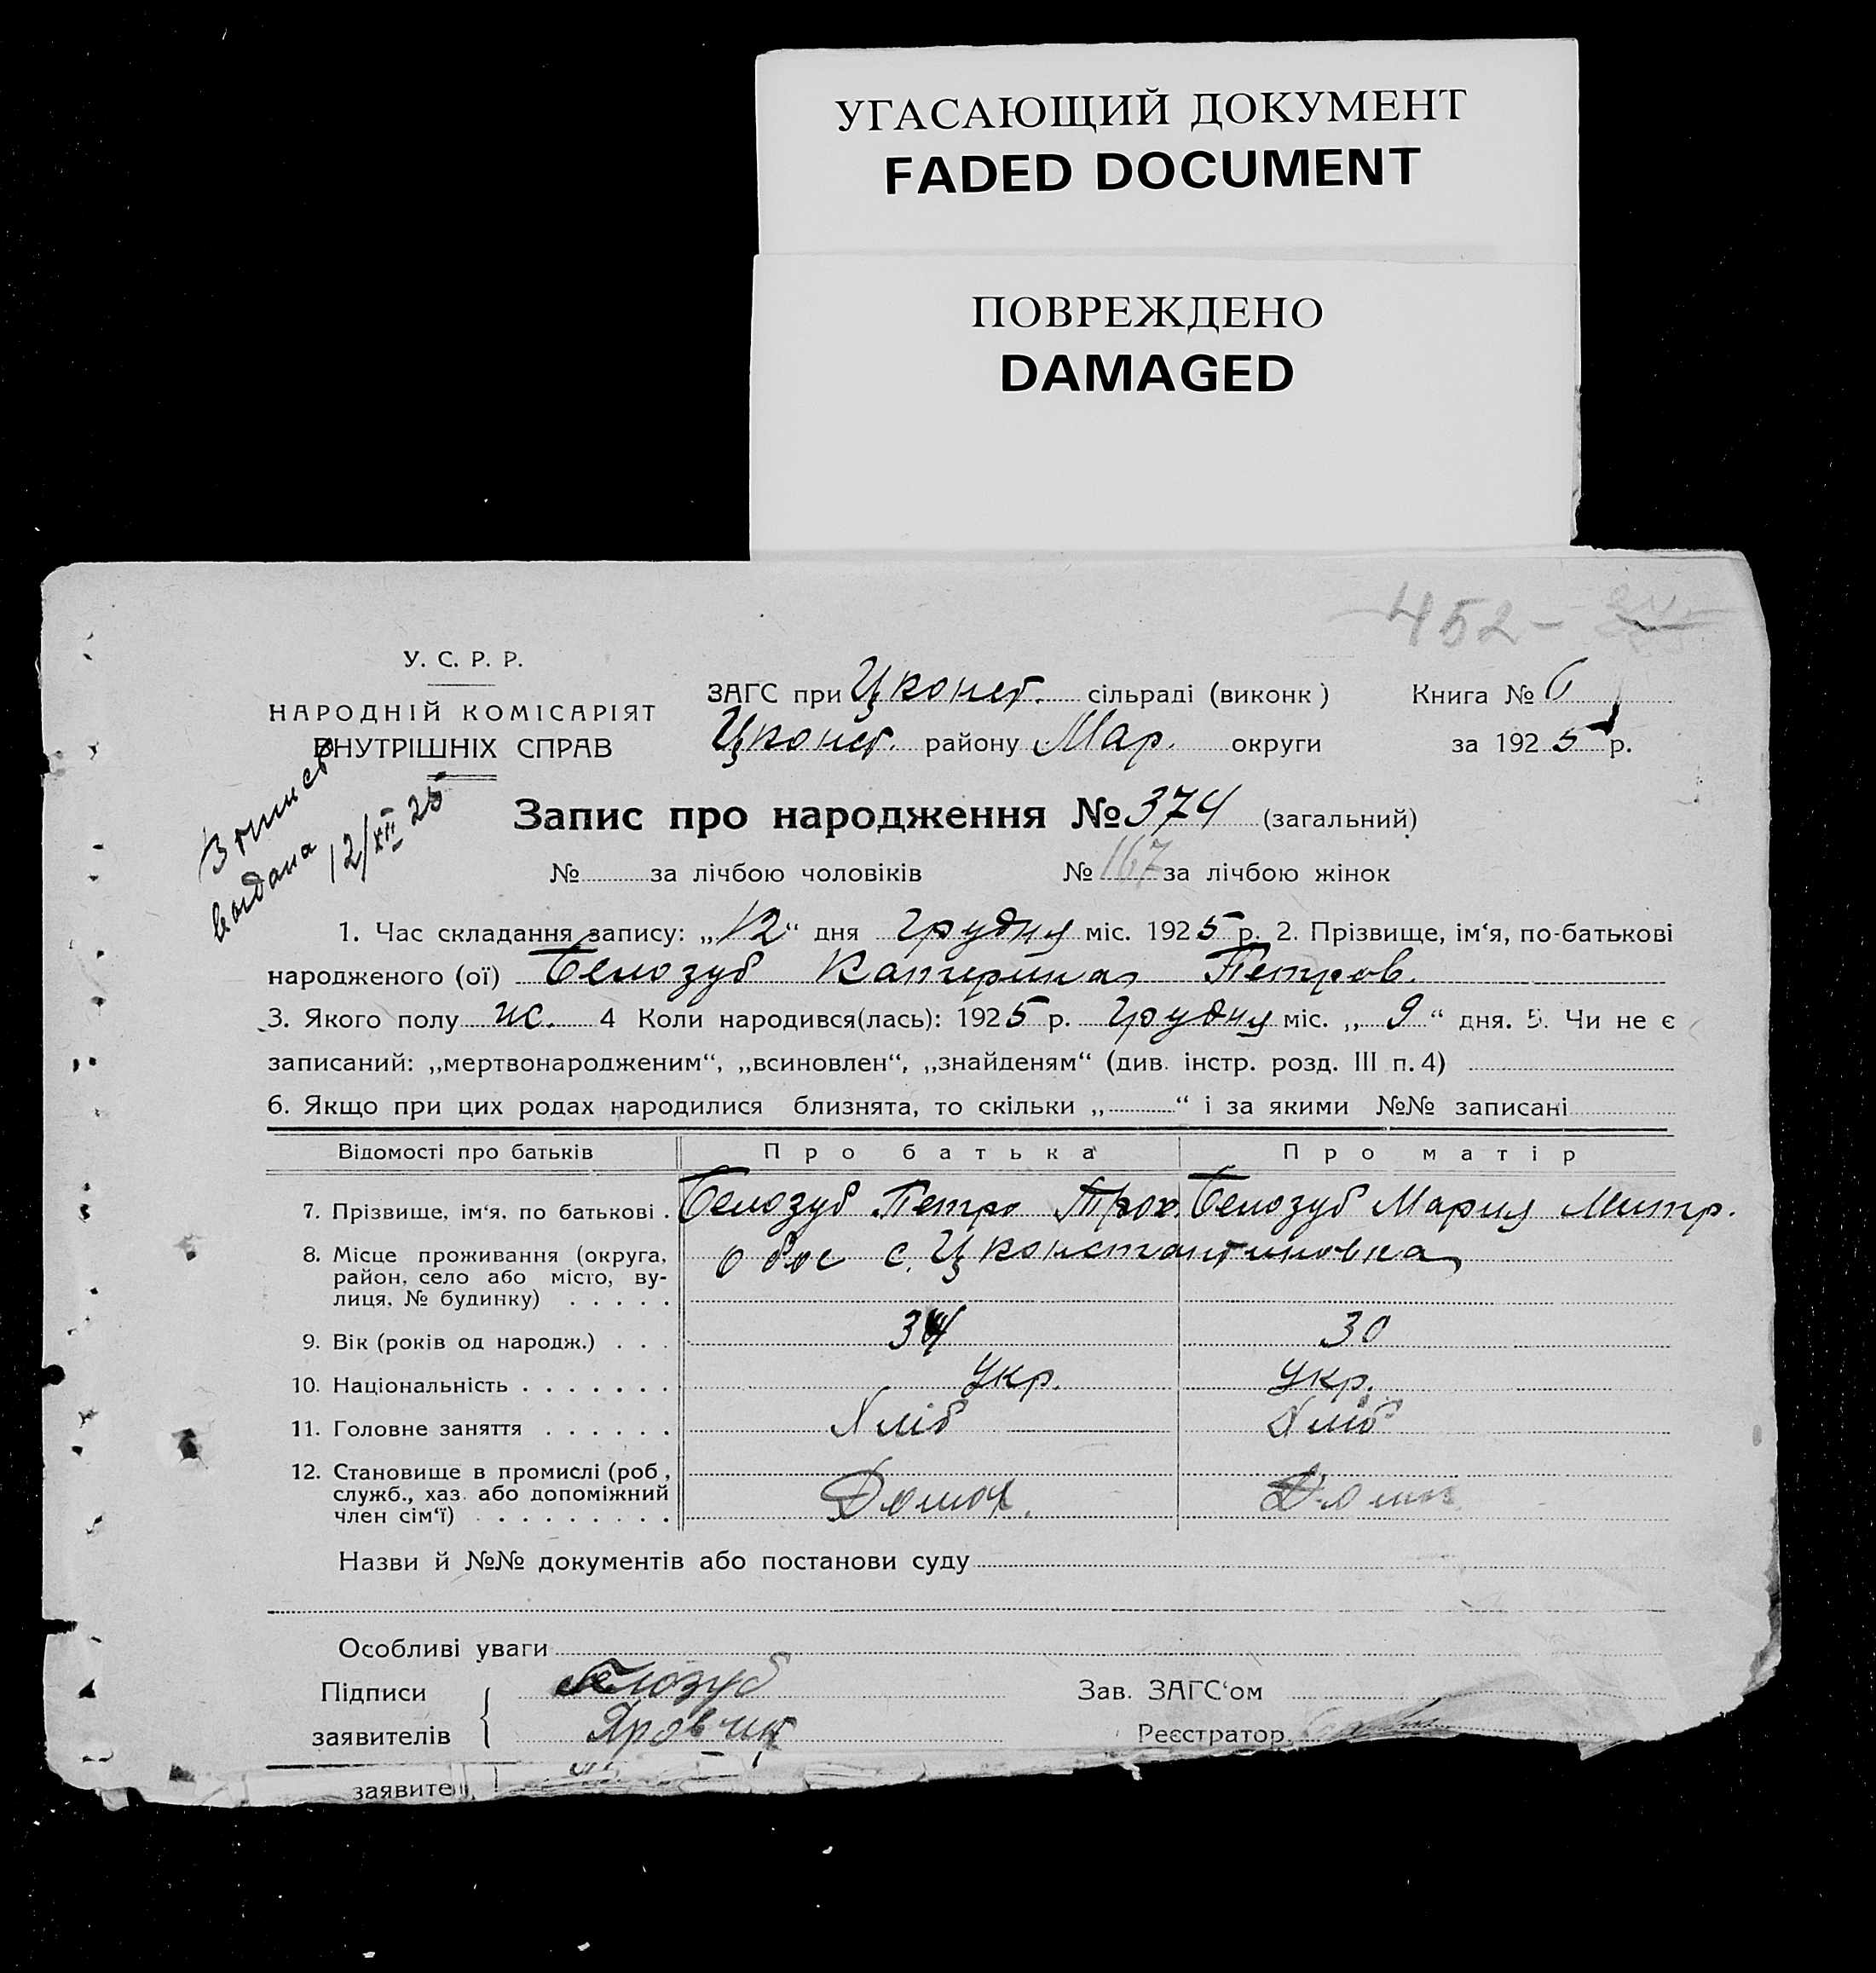 УГАСАЮЩИЙ ДОКУМЕНТ
FADED DOCUMENT
ПОВРЕЖДЕНО
DAMAGED
452-
У. С. Р. Р.
НАРОДНІЙ КОМІСАРІЯТ
ВНУТРІШНІХ СПРАВ
ЗАГС при Цконст. сільраді (виконк) Книга № 6
Цконст. району Мар. округи за 1925 р.
Запис про народження № 374 (загальний)
№ за лічбою чоловіків № 167 за лічбою жінок
Взнись
выдана 12/XII 25
1. Час складання запису: „12“ дня грудня міс. 1925 р. 2. Прізвище, ім‘я, по-батькові
народженого (ої) Белозуб Катерина Петров.
3. Якого полу ж. 4 Коли народився(лась): 1925 р. грудня міс. „9“ дня. 5. Чи не є
записаний: „мертвонародженим“, „всиновлен“, „знайденям“ (див. інстр. розд. III п. 4)
6. Якщо при цих родах народилися близнята, то скільки „ “ і за якими №№ записані
Відомості про батьків Про батька Про матір
7. Прізвище, ім‘я, по батькові . Белозуб Петро Трох. Белозуб Мария Митр.
8. Місце проживання (округа, обое с. Цконстантиновка
район, село або місто, ву-
лиця, № будинку) . . . . .
9. Вік (років од народж.) . . . 34 30
10. Національність . . . . . . . Укр. Укр.
11. Головне заняття . . . . . . Хліб Хліб
12. Становище в промислі (роб.,
служб., хаз. або допоміжний
член сім‘ї) . . . . . . . . .
Назви й №№ документів або постанови суду
Особливі уваги
Підписи Белозуб Зав. ЗАГС‘ом
заявителів Реєстратор
заявите